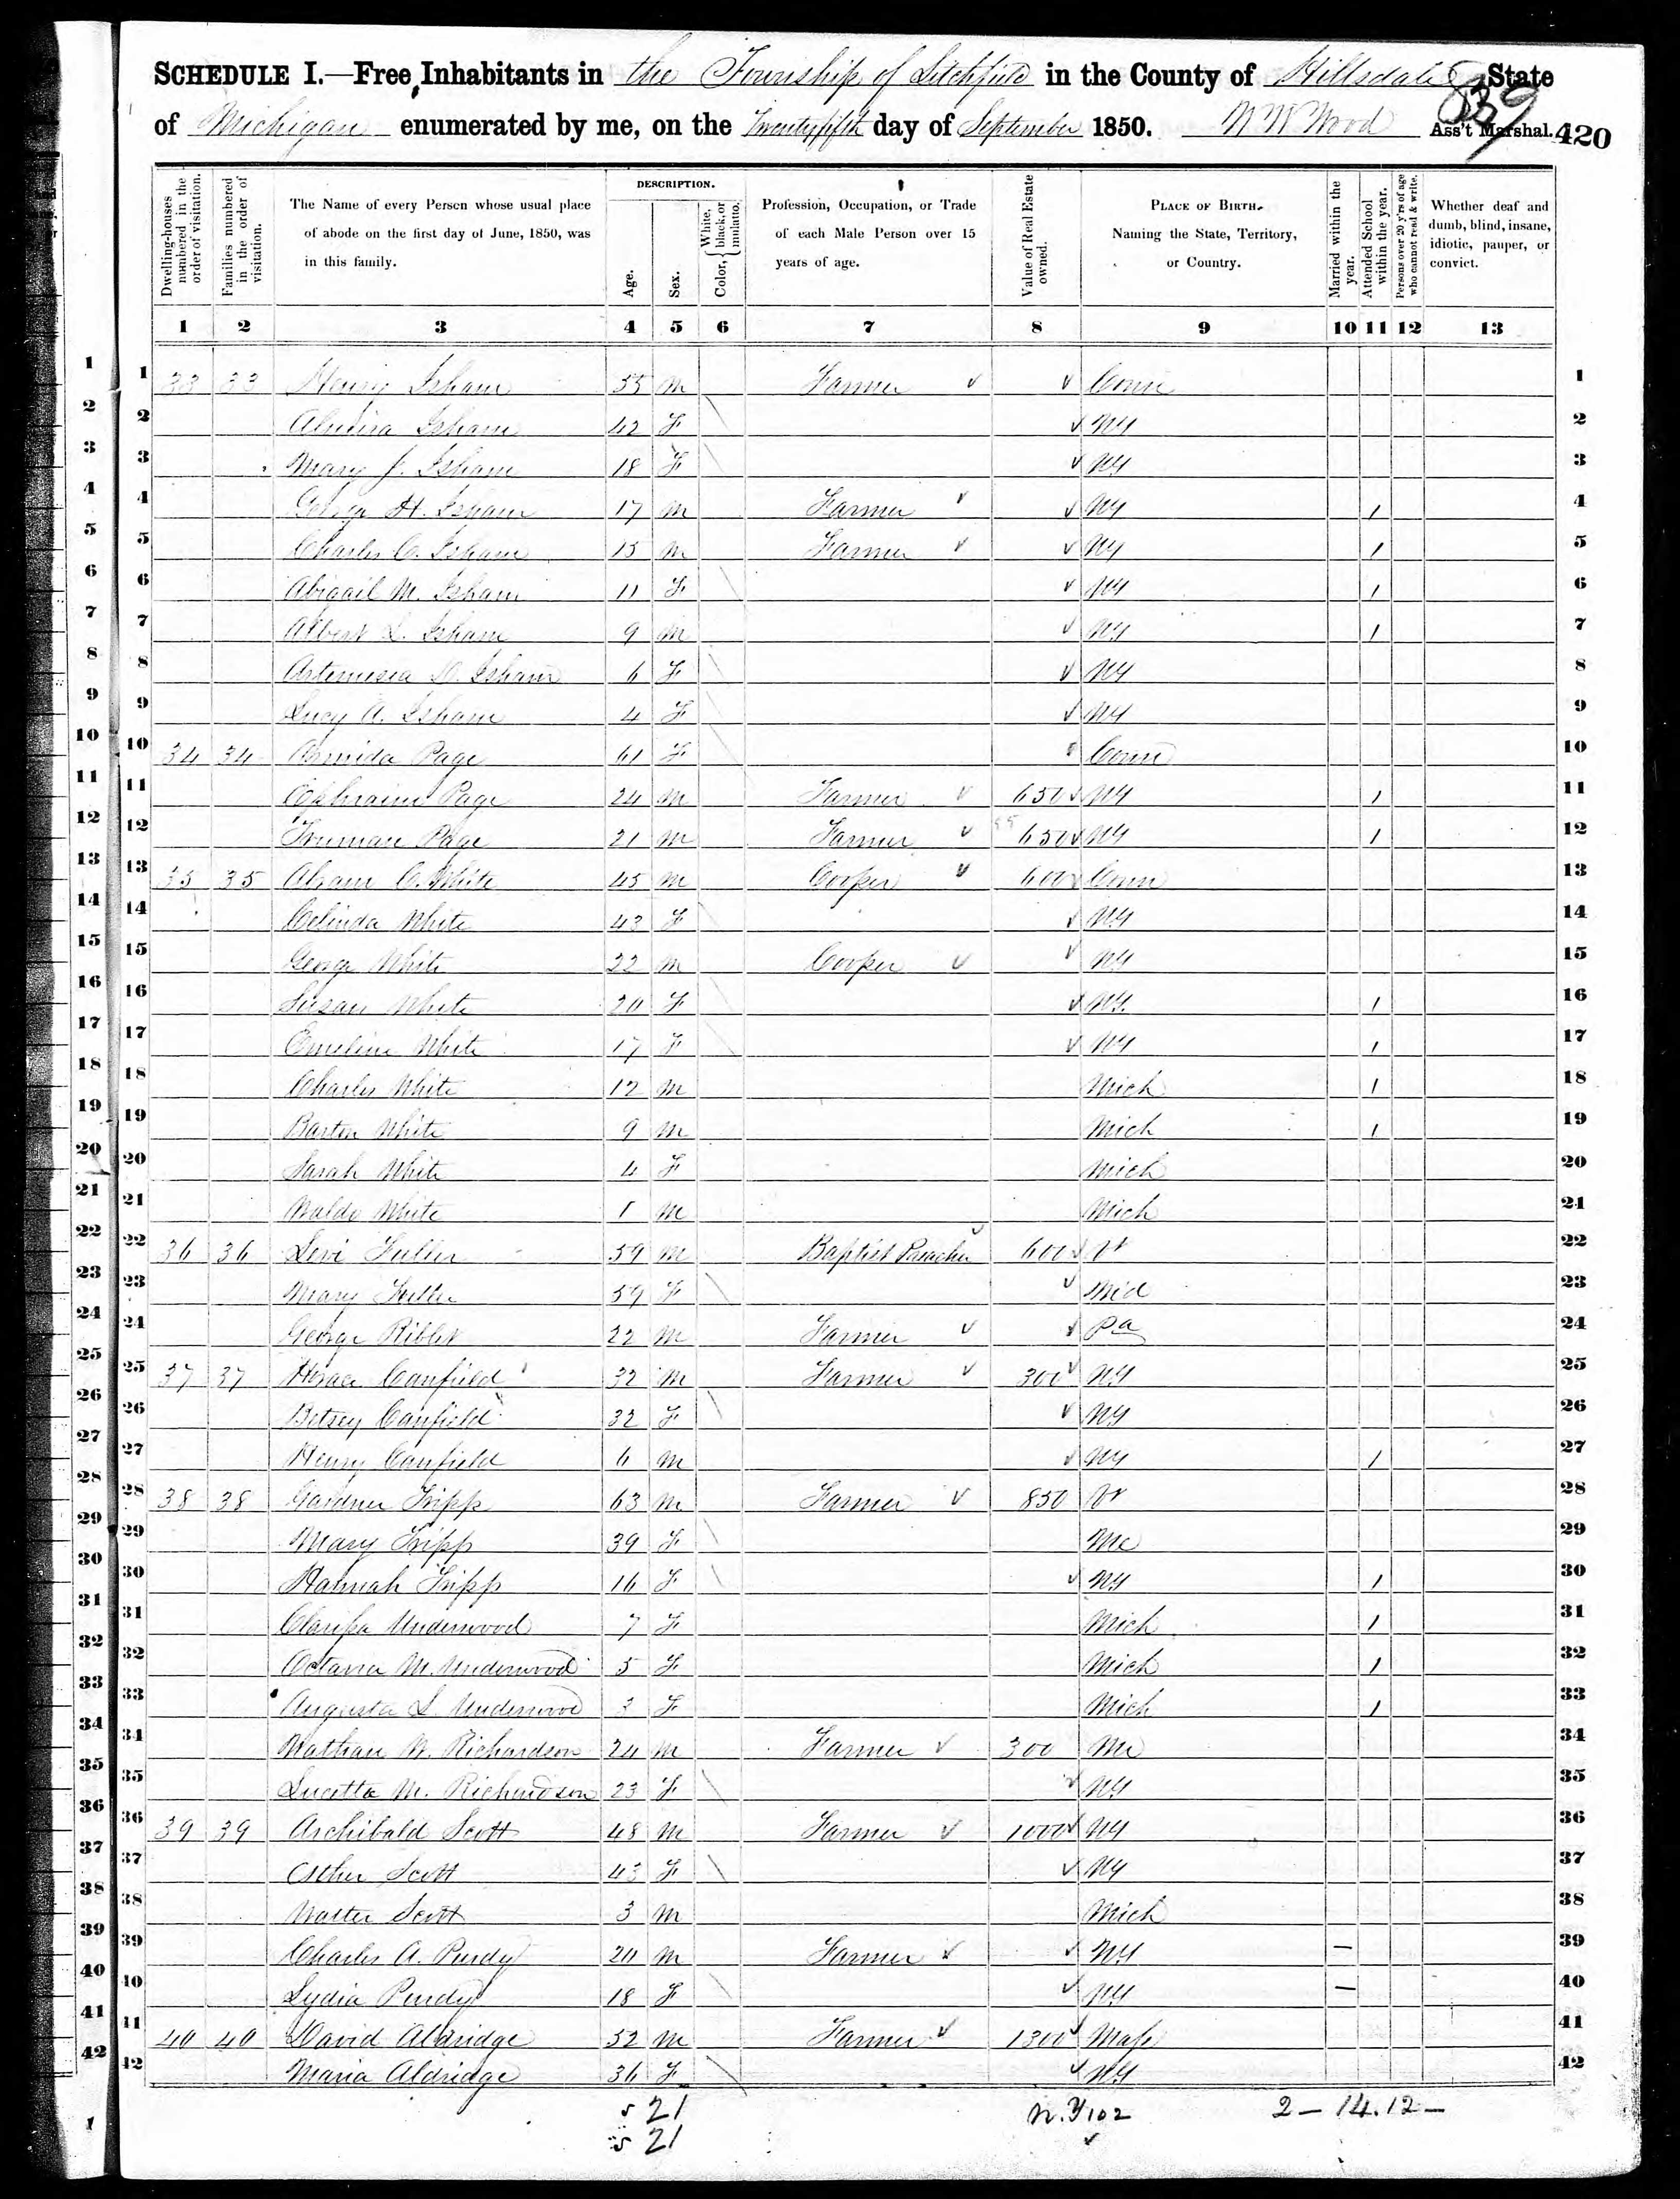 SCHEDULE I.—Free Inhabitants in the Township of Litchfield in the County of Hillsdale State
of Michigan enumerated by me, on the Twentyfifth day of September 1850. N W Wood Ass't Marshal. 420
839
Dwelling-houses numbered in the order of visitation.
Families numbered in the order of visitation.
The Name of every Person whose usual place of abode on the first day of June, 1850, was in this family.
DESCRIPTION.
Age.
Sex.
Color, { White, black, or mulatto.
Profession, Occupation, or Trade of each Male Person over 15 years of age.
Value of Real Estate owned.
PLACE OF BIRTH. Naming the State, Territory, or Country.
Married within the year.
Attended School within the year.
Persons over 20 y'rs of age who cannot read & write.
Whether deaf and dumb, blind, insane, idiotic, pauper, or convict.
1 2 3 4 5 6 7 8 9 10 11 12 13
1 33 33 Henry Isham 55 M Farmer Conn 1
2 Almira Isham 42 F NY 2
3 Mary J. Isham 18 F NY 3
4 H. Isham 17 M Farmer NY 1 4
5 Charles C. Isham 15 M Farmer NY 1 5
6 Abigail M. Isham 11 F NY 1 6
7 Albert L. Isham 9 M NY 1 7
8 Artemesia D. Isham 6 F NY 8
9 Lucy A. Isham 4 F NY 9
10 34 34 Armida Page 61 F Conn 10
11 Ephraim Page 24 M Farmer 650 NY 1 11
12 Truman Page 21 M Farmer 650 NY 1 12
13 35 35 Abram C. White 45 M Cooper 600 Conn 13
14 Celinda White 43 F NY 14
15 George White 22 M Cooper NY 15
16 Susan White 20 F NY. 1 16
17 Emeline White 17 F NY 1 17
18 Charles White 12 M Mich 1 18
19 Barton White 9 M Mich 1 19
20 Sarah White 4 F Mich 20
21 Waldo White 1 M Mich 21
22 36 36 Levi Fuller 59 M Baptist Preacher 600 Vt 22
23 Mary Fuller 59 F Md 23
24 George Riblet 22 M Farmer Pa 24
25 37 37 Horace Canfield 32 M Farmer 300 NY 25
26 Betsey Canfield 32 F NY 26
27 Henry Canfield 6 M NY 1 27
28 38 38 Gardner Tripp 63 M Farmer 850 Vt 28
29 Mary Tripp 39 F Me 29
30 Hannah Tripp 16 F NY 1 30
31 Clarissa Underwood 7 F Mich 1 31
32 Octavia M. Underwood 5 F Mich 1 32
33 Augusta L. Underwood 3 F Mich 1 33
34 Nathan W. Richardson 24 M Farmer 300 Me 34
35 Lucetta M. Richardson 23 F NY 35
36 39 39 Archibald Scott 48 M Farmer 1000 NY 36
37 Esther Scott 43 F NY 37
38 Walter Scott 3 M Mich 38
39 Charles A. Purdy 20 M Farmer NY — 39
40 Lydia Purdy 18 F NY — 40
41 40 40 David Aldridge 52 M Farmer 1300 Mass 41
42 Maria Aldridge 36 F NY 42
21
21
N.Y 102
2 — 14. 12 —